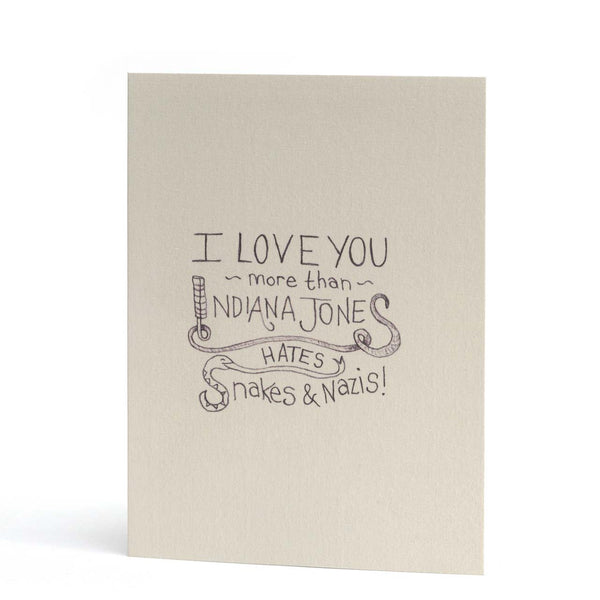 I LOVE YOU
~ more than ~
INDIANA JONES
HATES
Snakes & Nazis!